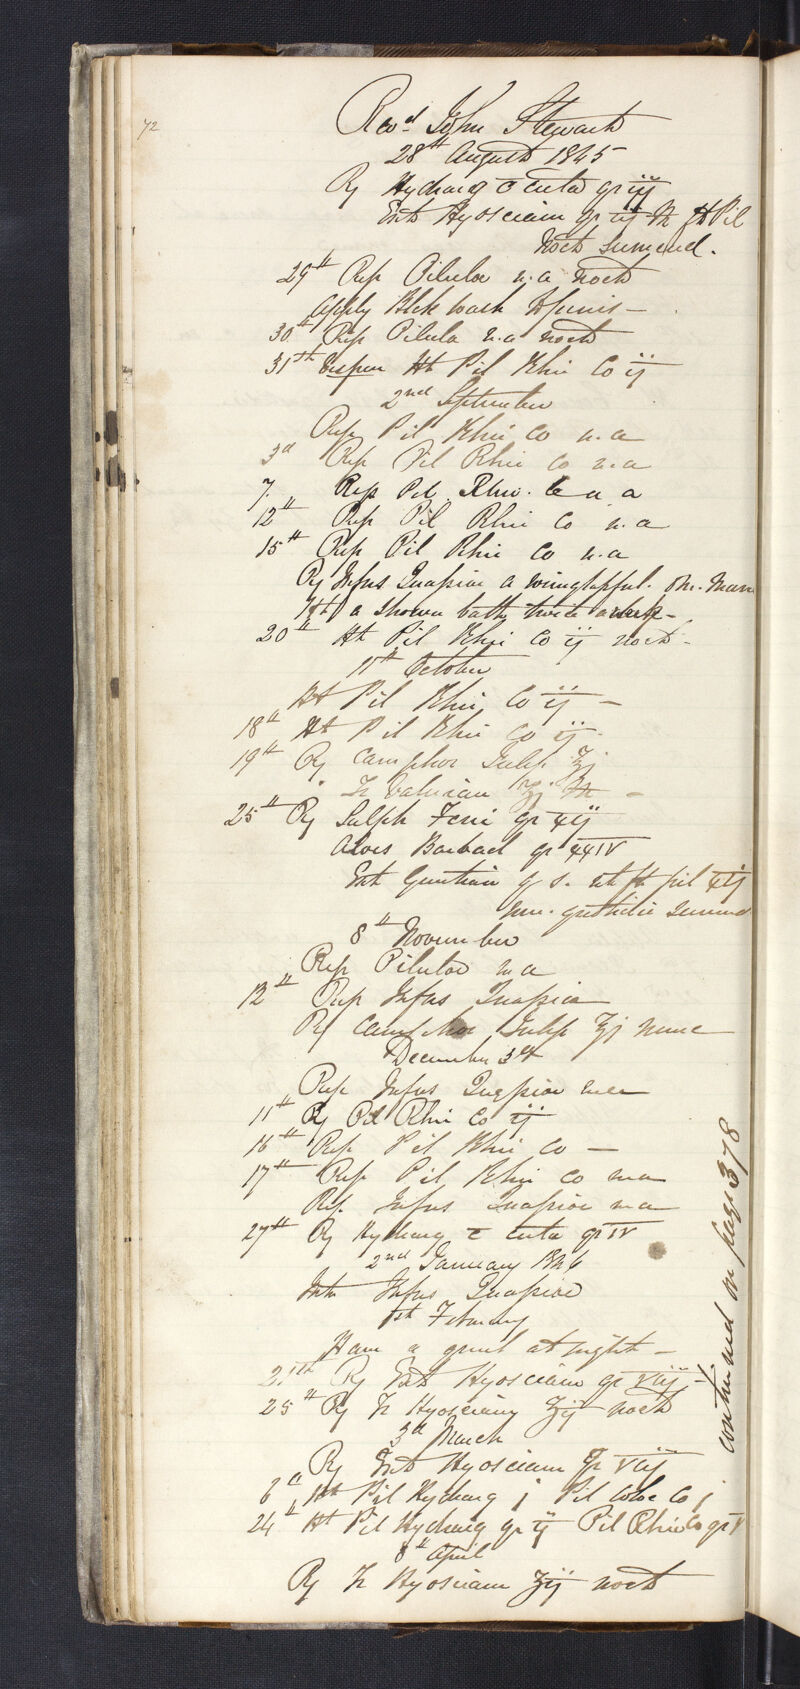 72
Revd John Stewart
28th August 1845
Rx Hydrarg c creta gr iij
Ext Hyosciam gr iij M ft Pil
Noct Sumend.
29th Rep Pilulae u.a noct
Apply Blck wash
30th Rep Pilula u.a noct
31st Vespere Ht Pil Rhei Co ij
2nd September
Rep Pil Rhei Co u.a
3d Rep Pil Rhei Co u.a
7. Rep Pil. Rhei. Co u a
12th Rep Pil Rhei Co u.a
15th Rep Pil Rhei Co u.a
Rx Infus Quassiae a wineglassful. om. Mane
Ht a Shower bath twice a week -
20th Ht Pil Rhei Co ij noct -
11th October
Ht Pil Rhei Co ij -
18th Ht Pil Rhei Co ij -
19th Rx Camphor Julep ℥j
Tr Valerian ʒj M -
25th Rx Sulph Ferri gr xij
Aloes Barbad gr xxiv
Ext Gentian q s. ut ft pil xij
una. quotidie Sumend
8th November
Rep Pilulae u a
12th Rep Infus Quassiae
Rx Camphor Julep ℥j nunc
December 3rd
Rep Infus Quassiae u a
11th Rx Pil Rhei Co ij
16th Rep Pil Rhei Co -
17th Rep Pil Rhei Co u a
Rep. Infus Quassiae u a
27th Rx Hydrarg c creta gr iv
2nd January 1846
Infus Quassiae
1st February
Have a gruel at night -
21st Rx Ext Hyosciam gr viij -
25th Rx Tr Hyosciam ʒij noct
3d March
Rx Ext Hyosciam gr viij
6th Ht Pil Hydrarg j Pil Coloc Co j
24th Ht Pil Hydrarg gr ij Pil Rhei Co gr v
8th April
Rx Tr Hyosciam ʒij noct
continued on page 378